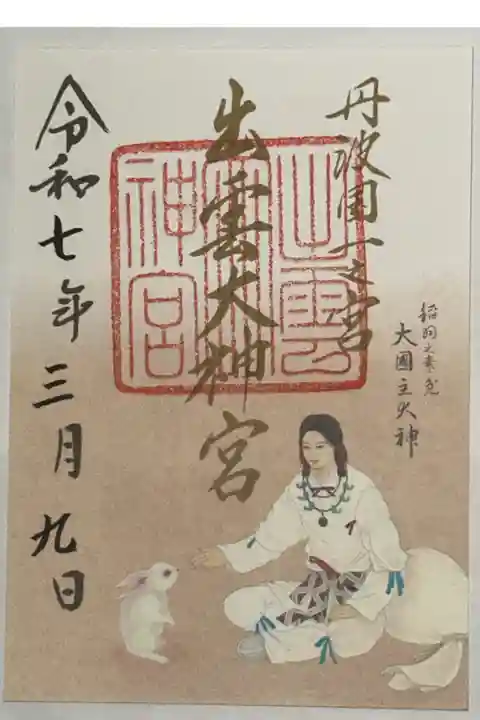 丹波國一之宮
出雲大神宮
出雲大神宮
稻羽之素兎
大國主大神
令和七年三月九日